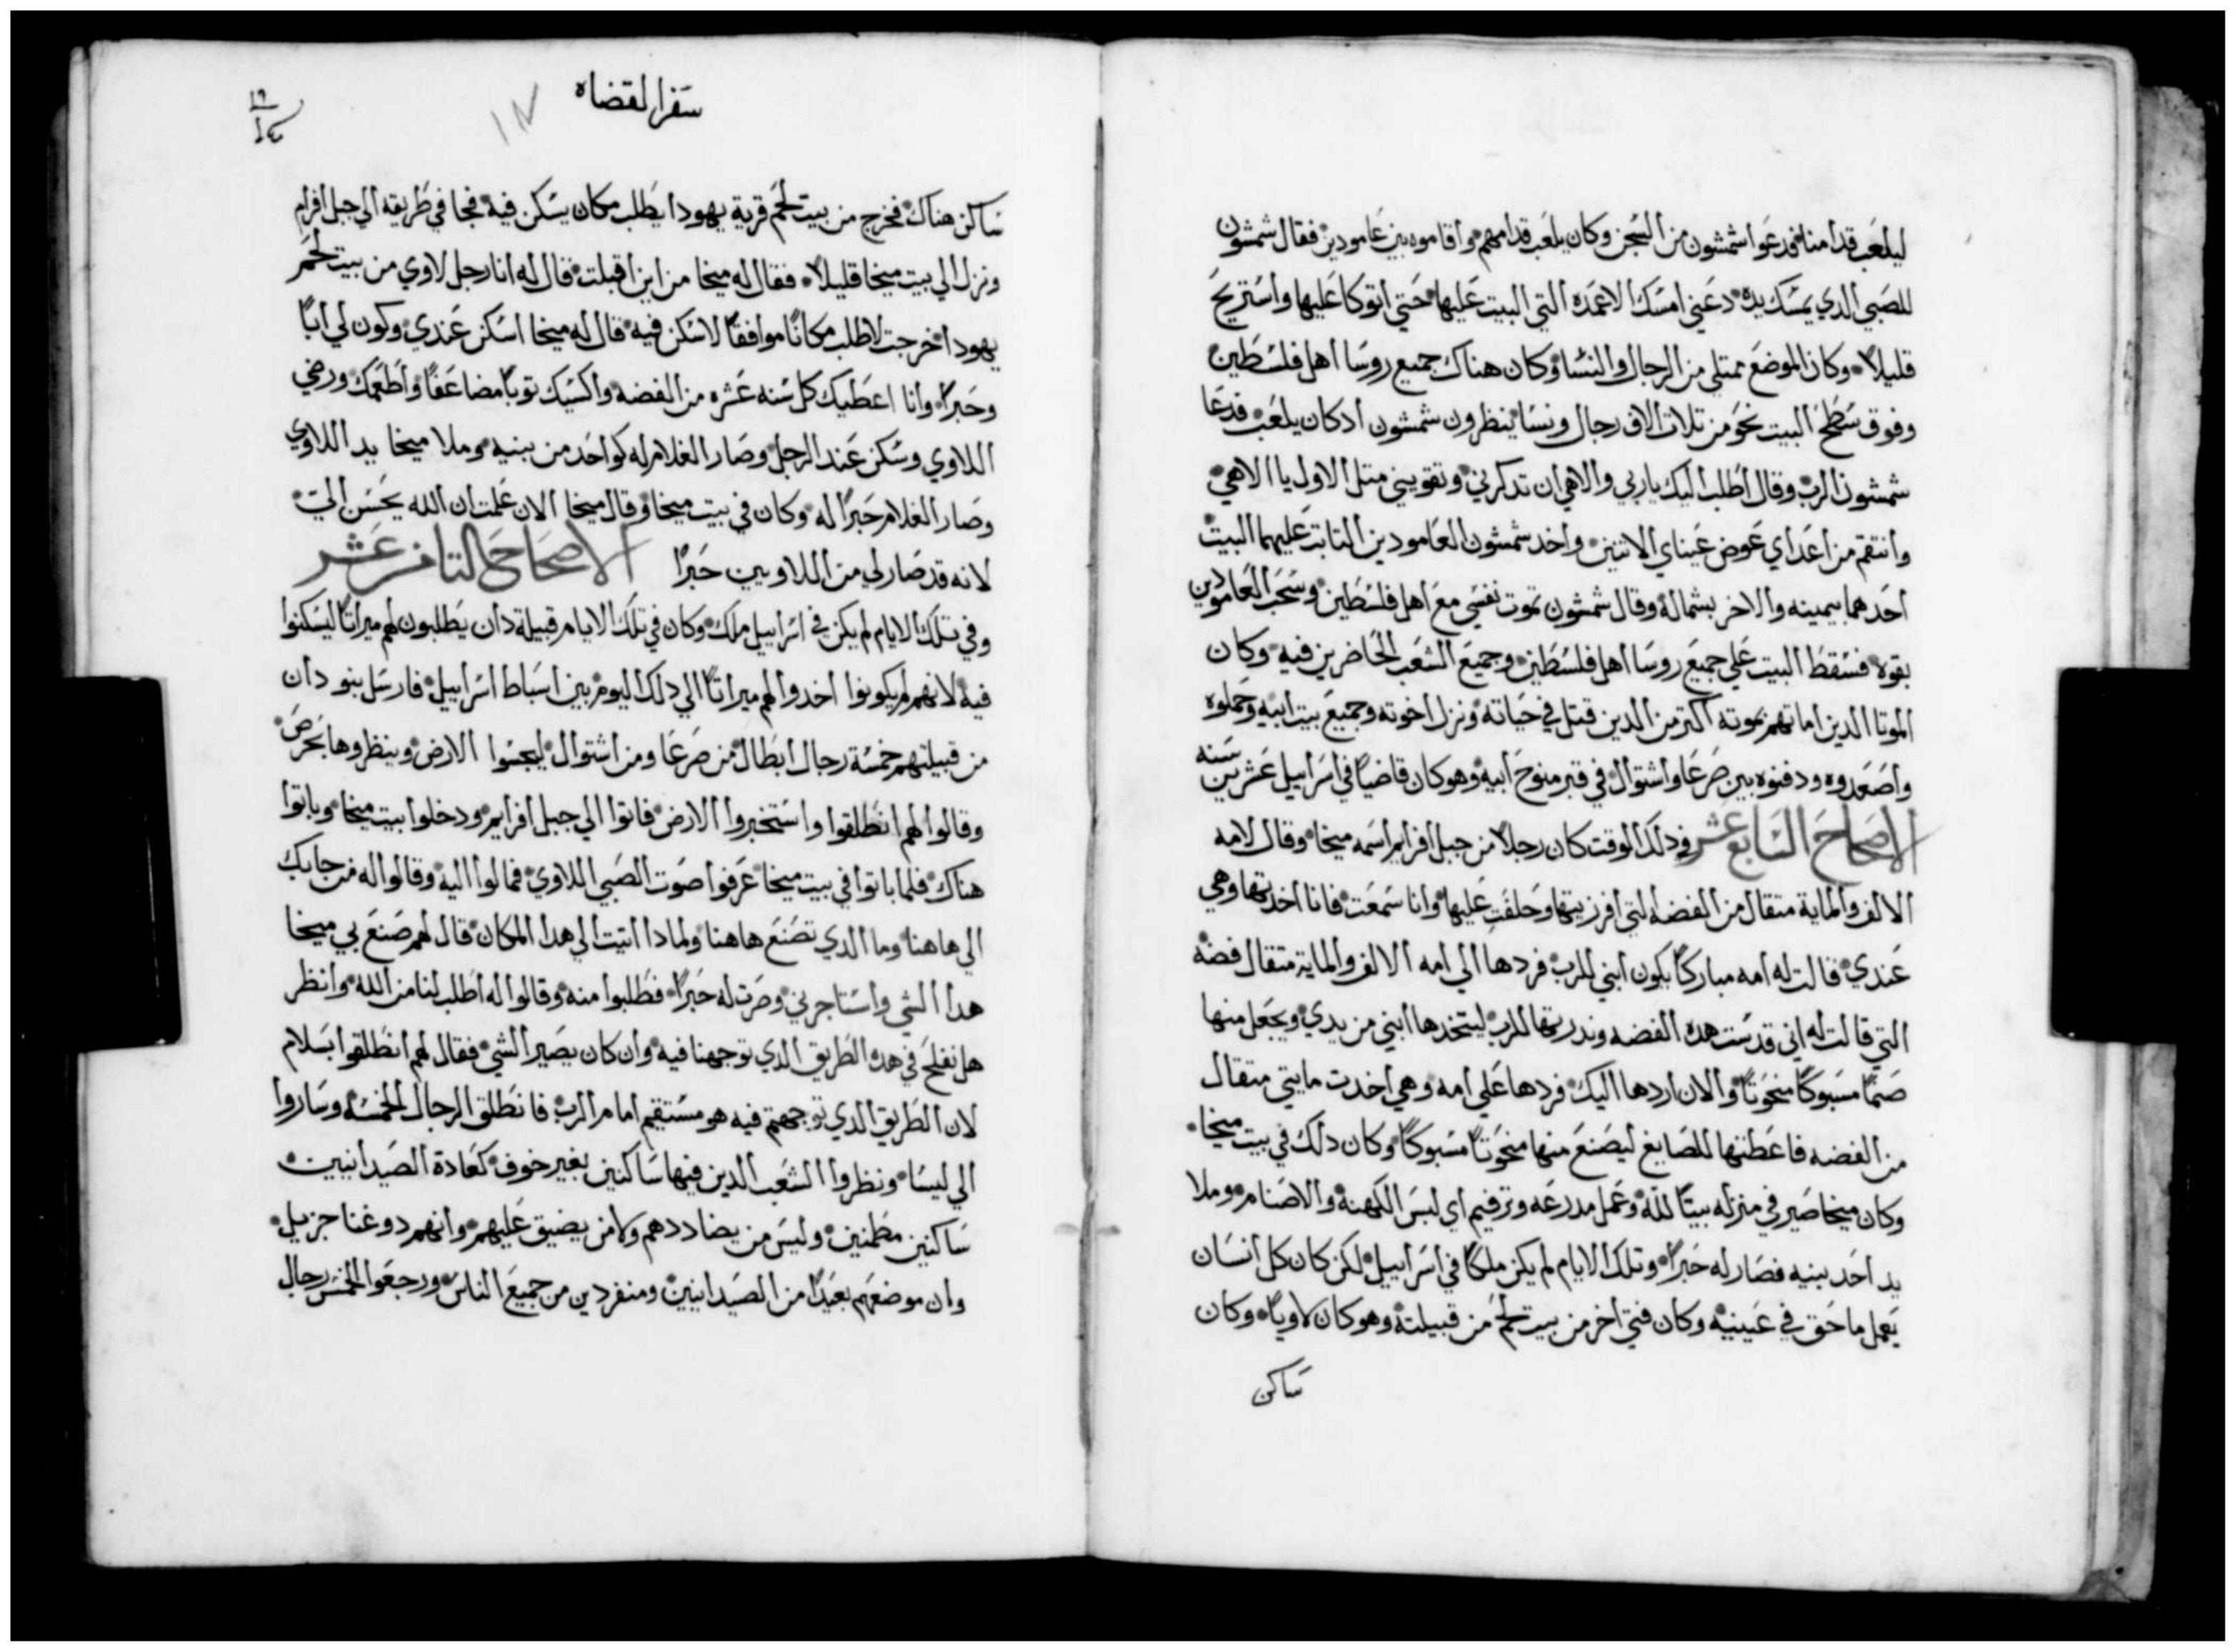 ليلعب قدامنا فدعوا شمشون من السجن وكان يلعب قدامهم واقاموه بين عامودين فقال شمشون
للصبي الدي يمسك يده دعني امسك الاعمده التي البيت عليها حتي اتوكا عليها واستريح
قليلاً وكان الموضع ممتلي من الرجال والنسا وكان هناك جميع روسا اهل فلسطين
وفوق سطح البيت نحو من تلات الاف رجال ونسا ينظرون شمشون ادكان يلعب فدعا
شمشون الرب وقال اطلب اليك ياربي والاهي ان تدكرني وتقويني متل الاول يا الاهي
وانتقم من اعداي عوض عيناي الاتنين واخد شمشون العامودين التابت عليهما البيت
احدهما بيمينه والاخر بشماله وقال شمشون تموت نفسي مع اهل فلسطين وسحب العامودين
بقوه فسقط البيت علي جميع روسا اهل فلسطين وجميع الشعب الحاضرين فيه وكان
الموتا الدين اماتهم بموته اكتر من الدين قتل في حياته ونزل اخوته وجميع بيت ابيه وحملوه
واصعدوه ودفنوه بين صرعا واشتوال في قبر منوح ابيه وهو كان قاضياً في اسراييل عشرين سنه
الاصحاح السابع عشر في دلك الوقت كان رجلاً من جبل افرايم اسمه ميخا وقال لامه
الالف والماية متقال من الفضه التي افرزتيها وحلفت عليها وانا سمعت فانا اخدتها وهي
عندي قالت له امه مباركاً يكون ابني للرب فردها الي امه الالف والماية متقال فضه
التي قالت له اني قدست هده الفضه وندرتها للرب ليتخدها ابني من يدي ويجعل منها
صنماً مسبوكاً منحوتاً والان اردها اليك فردها علي امه وهي اخدت مايتي متقال
من الفضه فاعطتها للصايغ ليصنع منها منحوتاً مسبوكاً وكان دلك في بيت ميخا
وكان ميخا صير في منزله بيتاً لله وعمل مدرعه وترفيم اي لبس الكهنة والاصنام وملا
يد احد بنيه فصار له حبراً وتلك الايام لم يكن ملكاً في اسراييل لكن كان كل انسان
يعمل ما حق في عينيه وكان فتي اخر من بيت لحم من قبيلته وهو كان لاوياً وكان
ساكن
سفر القضاه
١٧
ساكن هناك فخرج من بيت لحم قرية يهودا يطلب مكان يسكن فيه فجا في طريقه الي جبل افرايم
ونزل الي بيت ميخا قليلاً فقال له ميخا من اين اقبلت قال له انا رجل لاوي من بيت لحم
يهودا خرجت لاطلب مكاناً موافقاً لاسكن فيه قال له ميخا اسكن عندي وكون لي اباً
وحبراً وانا اعطيك كل سنه عشره من الفضه واكسيك توباً مضاعفاً واطعمك ورضي
اللاوي وسكن عند الرجل وصار الغلام له كواحد من بنيه وملا ميخا يد اللاوي
وصار الغلام حبراً له وكان في بيت ميخا وقال ميخا الان علمت ان الله يحسن الي
لانه قد صار لي من اللاويين حبراً الاصحاح التامن عشر
وفي تلك الايام لم يكن في اسراييل ملك وكان في تلك الايام قبيلة دان يطلبون لهم ميراتاً ليسكنوا
فيه لانهم لم يكونوا اخدوا لهم ميراتاً الي دلك اليوم بين اسباط اسراييل فارسل بنو دان
من قبيلتهم خمسة رجال ابطال من صرعا ومن اشتوال ليجسوا الارض وينظروها بحرص
وقالوا لهم انطلقوا واستخبروا الارض فاتوا الي جبل افرايم ودخلوا بيت ميخا وباتوا
هناك فلما باتوا في بيت ميخا عرفوا صوت الصبي اللاوي فمالوا اليه وقالوا له من جابك
الي هاهنا وما الدي تصنع هاهنا ولمادا اتيت الي هدا المكان قال لهم صنع بي ميخا
هدا الشي واستاجرني وصرت له حبراً فطلبوا منه وقالوا له اطلب لنا من الله وانظر
هل نفلح في هده الطريق الدي توجهنا فيه وان كان يصير الشي فقال لهم انطلقوا بسلام
لان الطريق الدي توجهتم فيه هو مستقيم امام الرب فانطلق الرجال الخمسه وساروا
الي ليسا ونظروا الشعب الدين فيها ساكنين بغير خوف كعادة الصيدانيين
ساكنين مطمنين وليس من يضاددهم ولا من يضيق عليهم وانهم دو غنا جزيل
وان موضعهم بعيداً من الصيدانيين ومنفردين من جميع الناس ورجعوا الخمس رجال